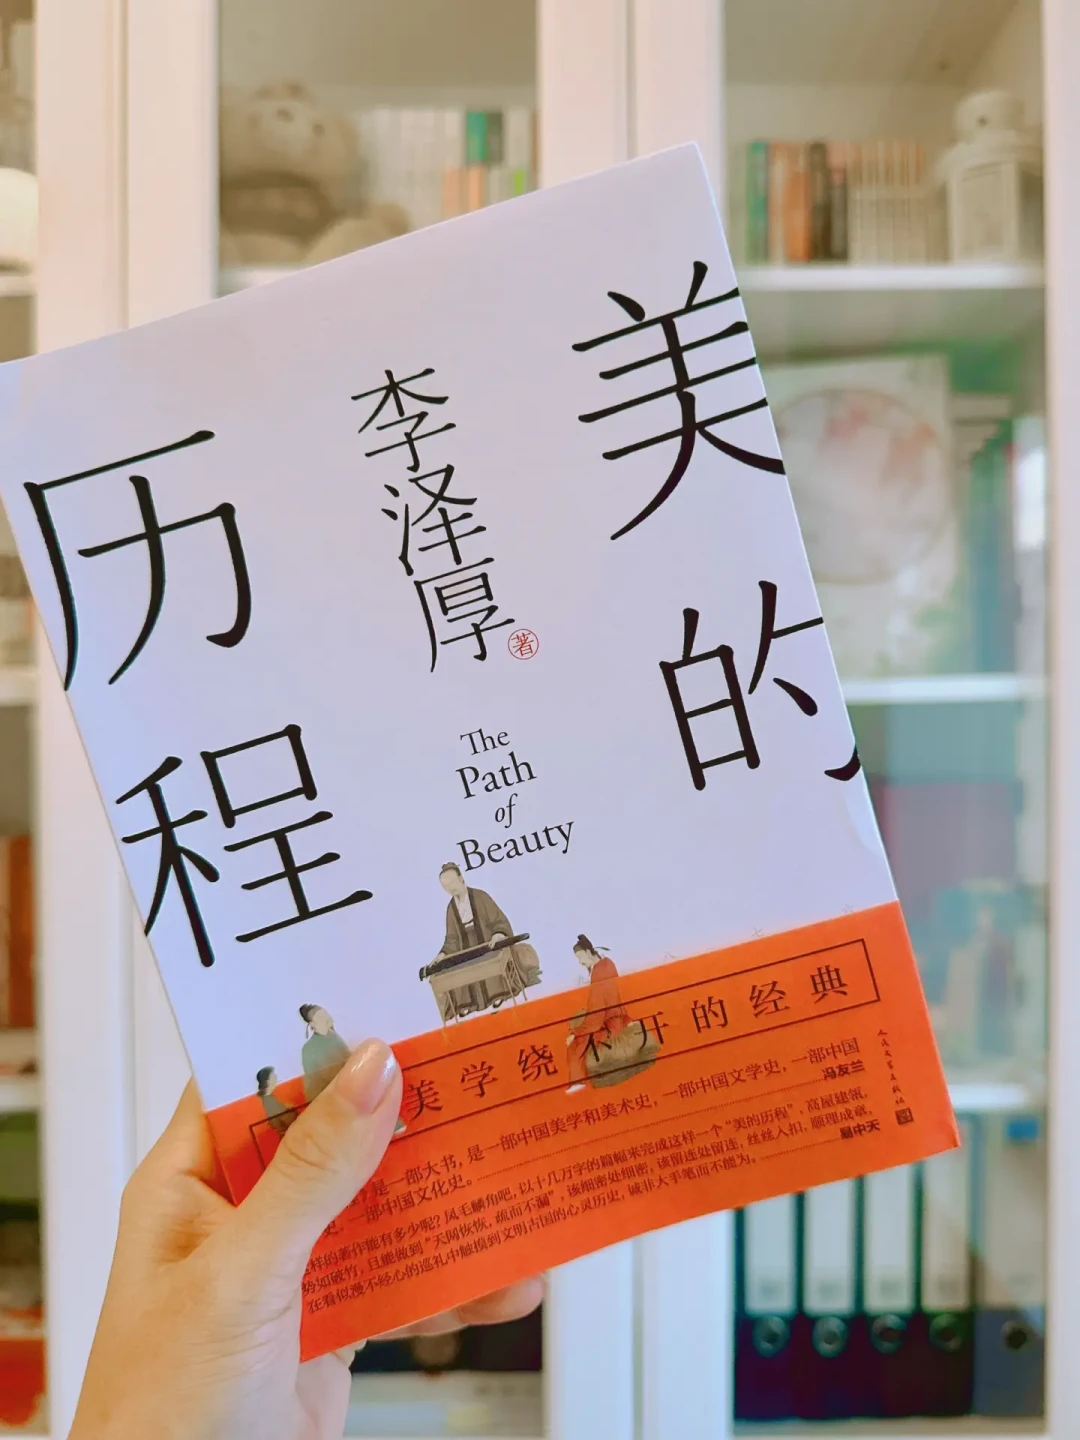 美的
历程
李泽厚
著
The
Path
of
Beauty
美学绕不开的经典
是一部大书，是一部中国美学和美术史，一部中国文学史，一部中国
史，一部中国文化史。
冯友兰
样的著作能有多少呢？凤毛麟角吧，以十几万字的篇幅来完成这样一个“美的历程”，高屋建瓴，
势如破竹，且能做到“天网恢恢，疏而不漏”，该细密处细密，该留连处留连，丝丝入扣，顺理成章，
在看似漫不经心的巡礼中触摸到文明古国的心灵历史，诚非大手笔而不能为。
易中天
人民文学出版社